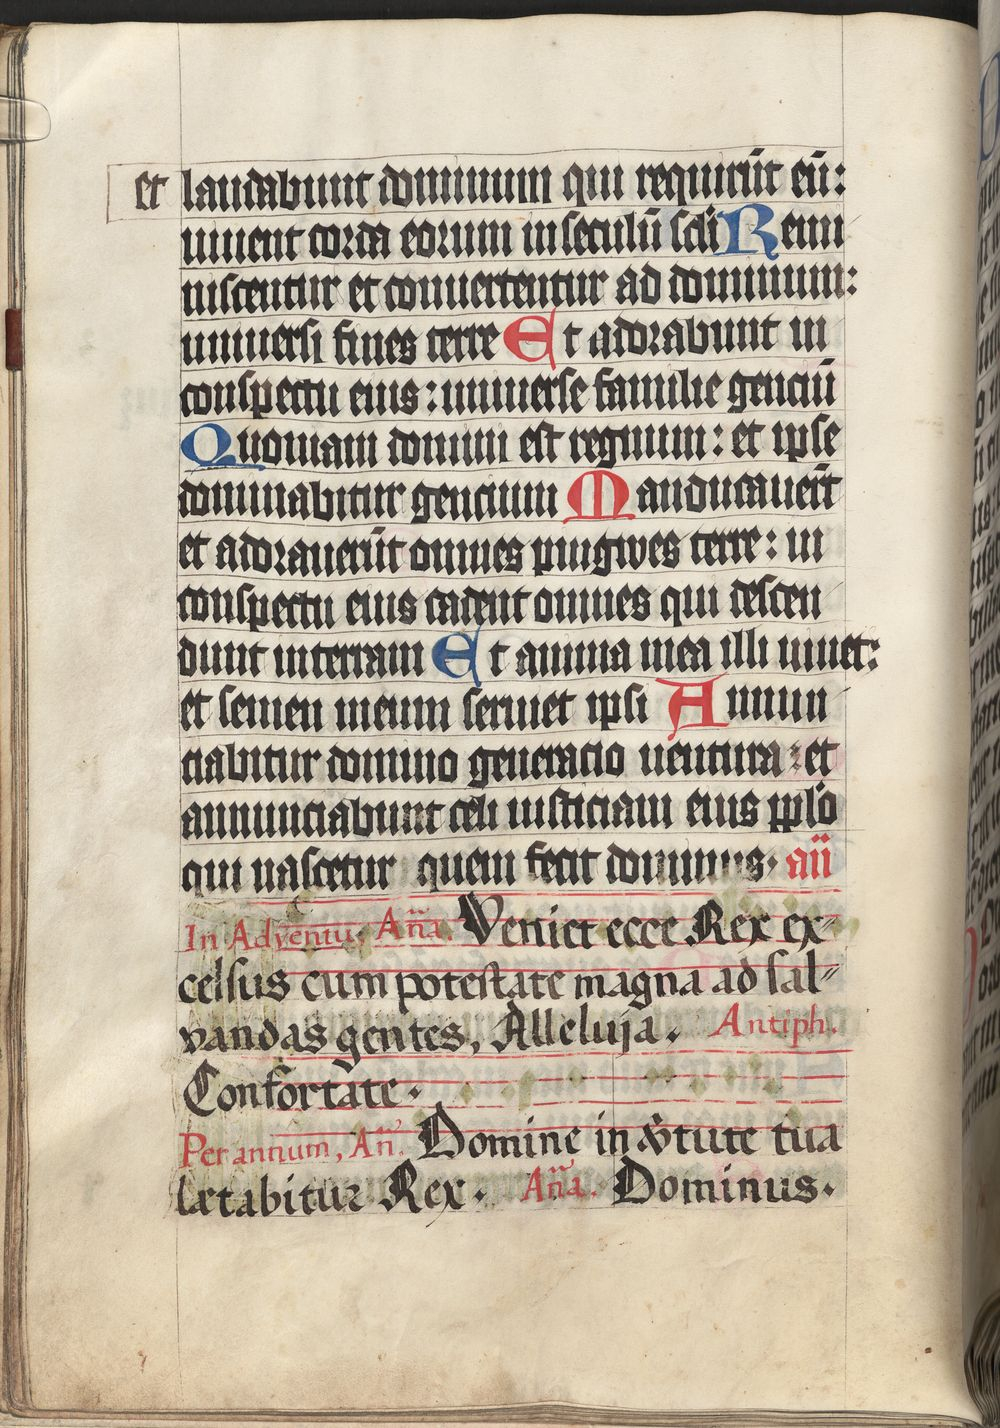 et laudabunt dominum qui requirūt eū:
uiuent corda eorum in seculū scli Remi
niscentur et conuertentur ad dominum:
uniuersi fines terre Et adorabunt in
conspectu eius: uniuerse familie genciū
Quoniam domini est regnum: et ipse
dominabitur gencium Manducauerūt
et adorauerūt omnes pingwes terre: in
conspectu eius cadent omnes qui descen
dunt in terram Et anima mea illi uiuet:
et semen meum seruiet ipsi Annun
ciabitur domino generacio uentura: et
annunciabunt celi iusticiam eius pplo
qui nascetur quem fecit dominus. añ
In Adventu, Aña. Veniet ecce Rex ex-
celsus cum potestate magna ad sal-
vandas gentes, Alleluja. Antiph.
Confortate.
Per annum, Añ. Domine in v̄tute tua
lætabitur Rex. Aña. Dominus.